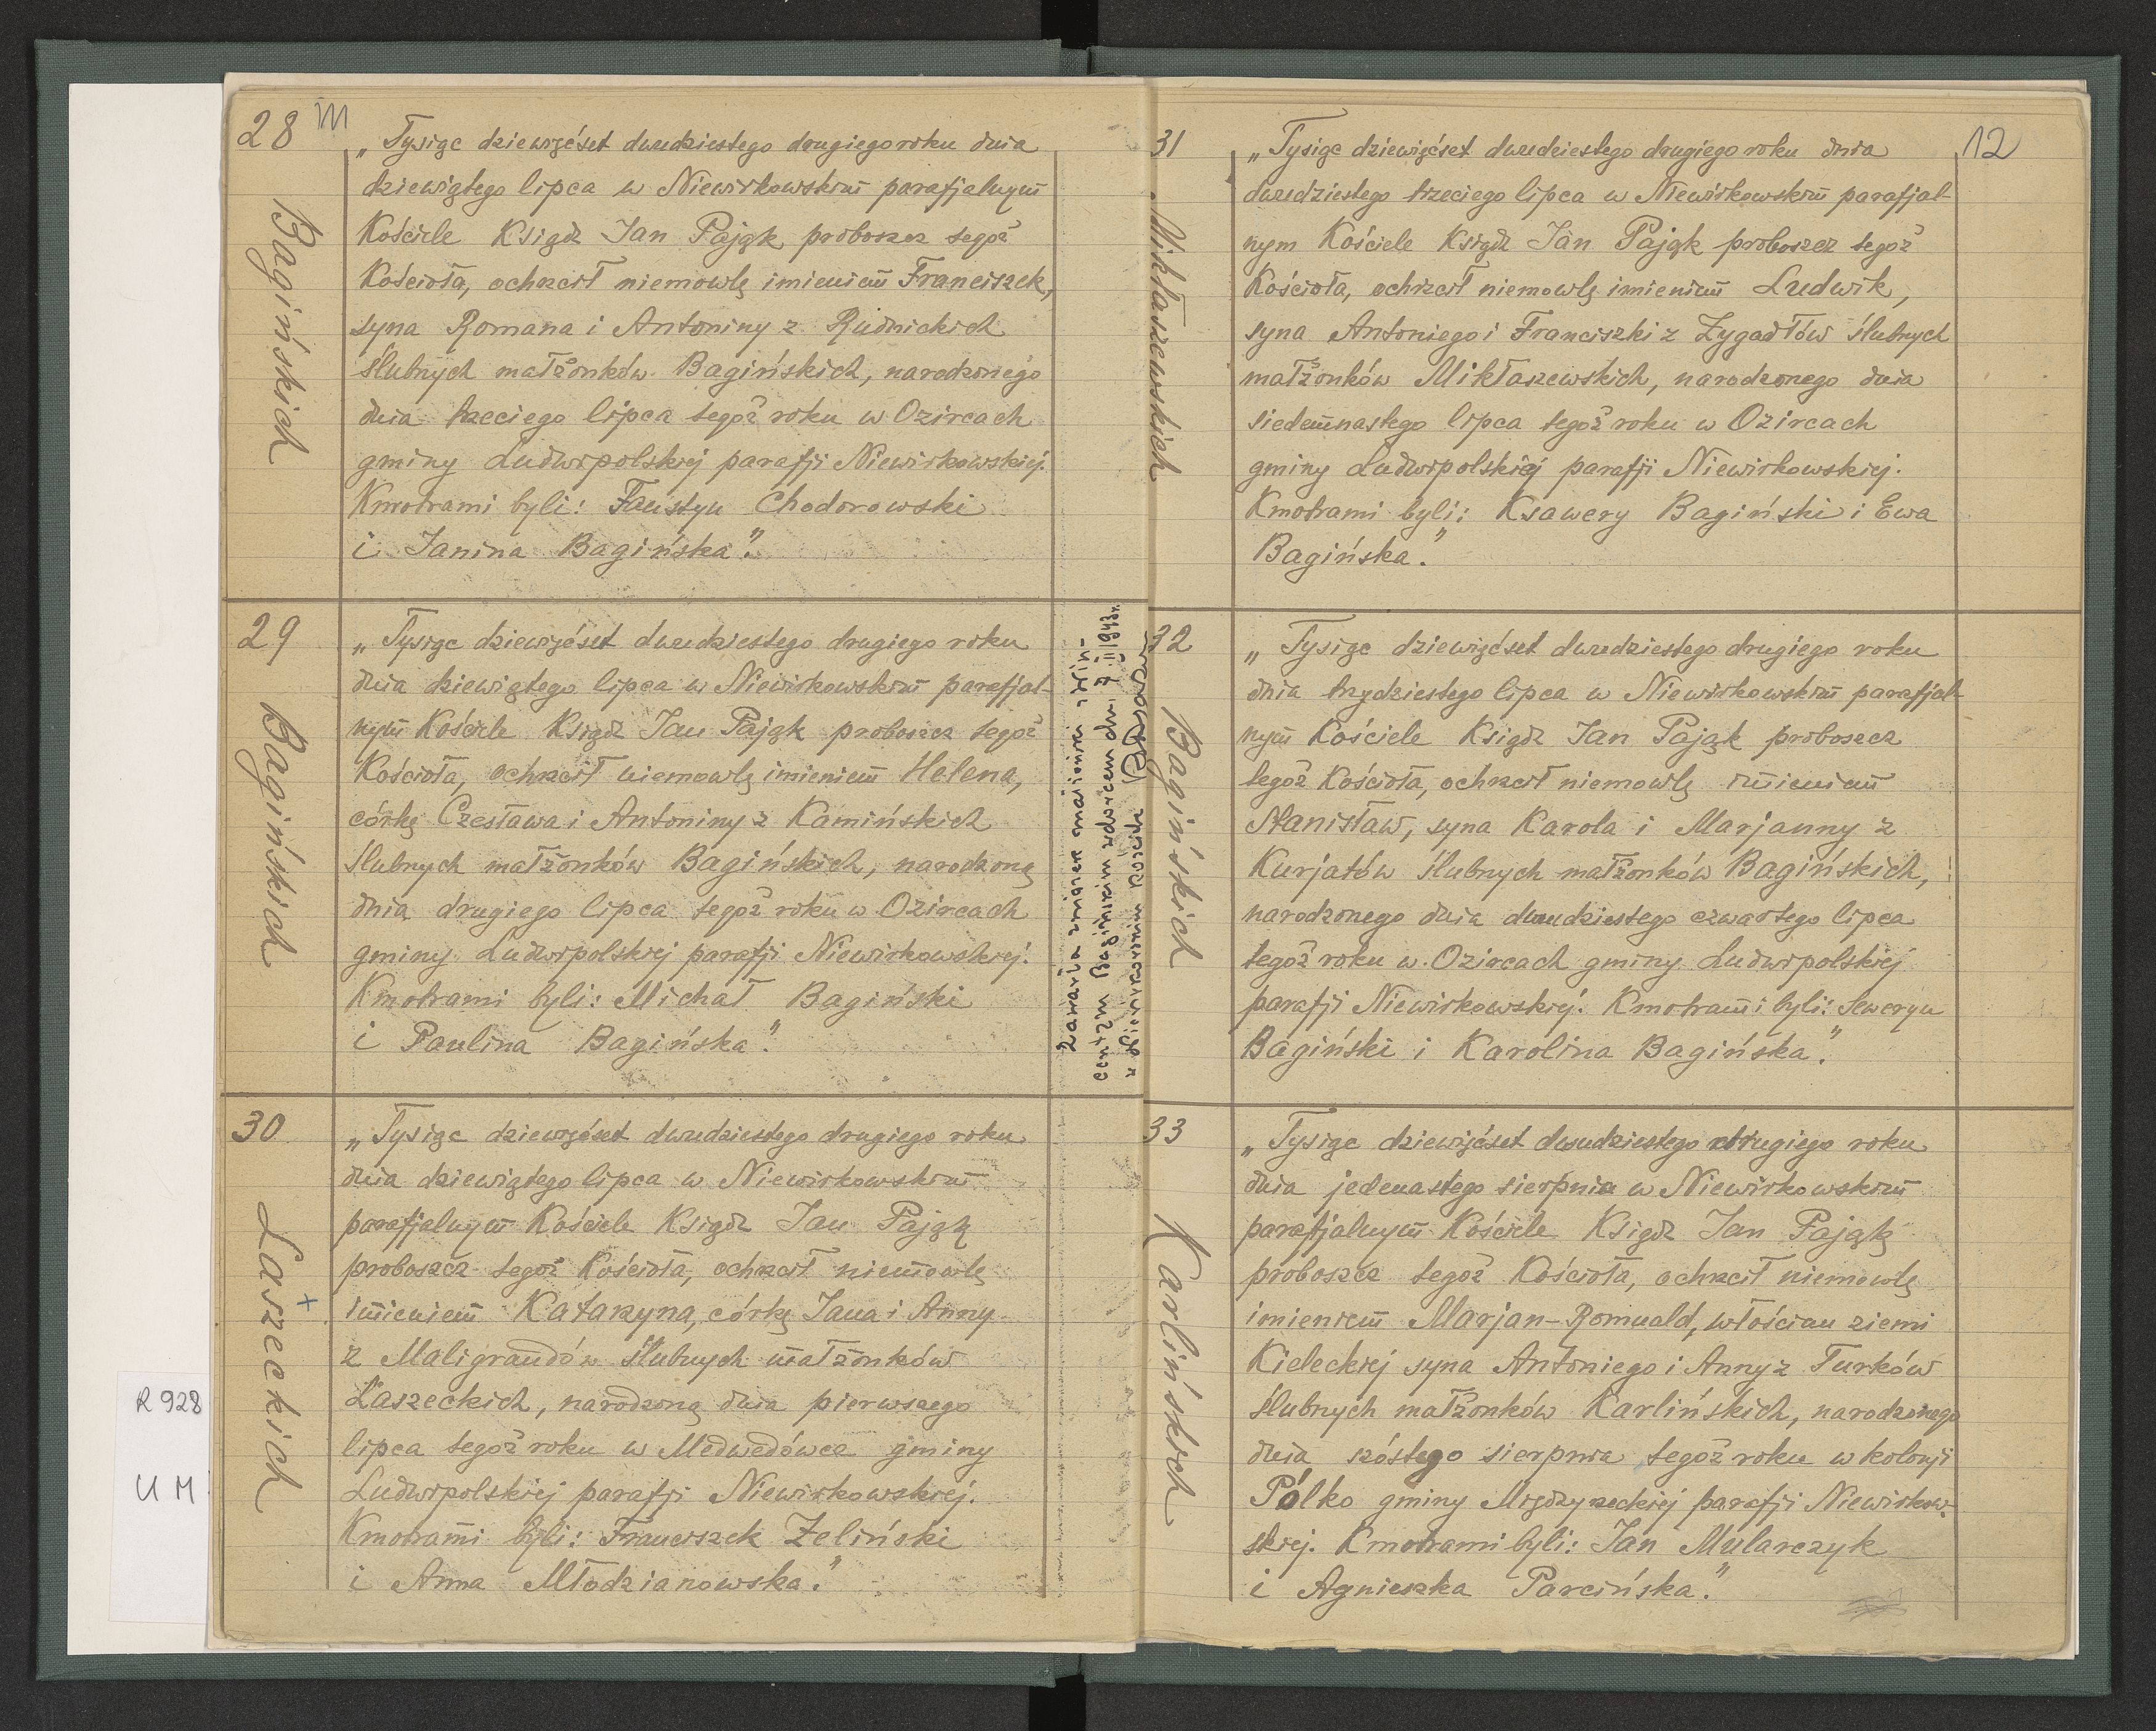 28
m
Bagińskich
„Tysiąc dziewięćset dwudziestego drugiego roku dnia
dziewiątego lipca w Niewirkowskim parafjalnym
Kościele Ksiądz Jan Pająk proboszcz tegoż
Kościoła, ochrzcił niemowlę imieniem Franciszek,
syna Romana i Antoniny z Rudnickich
ślubnych małżonków Bagińskich, narodzonego
dnia trzeciego lipca tegoż roku w Ozircach
gminy Ludwipolskiej parafji Niewirkowskiej.
Kmotrami byli: Faustyn Chodorowski
i Janina Bagińska".
29
Bagińskich
„Tysiąc dziewięćset dwudziestego drugiego roku
dnia dziewiątego lipca w Niewirkowskim parafjal-
nym Kościele Ksiądz Jan Pająk proboszcz tegoż
Kościoła, ochrzcił niemowlę imieniem Helena,
córkę Czesława i Antoniny z Kamińskich
ślubnych małżonków Bagińskich, narodzoną
dnia drugiego lipca tegoż roku w Ozircach
gminy Ludwipolskiej parafji Niewirkowskiej.
Kmotrami byli: Michał Bagiński
i Paulina Bagińska".
Zawarła związek małżeński z Win-
centym Bagińskim wdowcem dn. 7 II 1943 r.
w Niewirkowskim kościele
30
Łaszeckich
„Tysiąc dziewięćset dwudziestego drugiego roku
dnia dziewiątego lipca w Niewirkowskim
parafjalnym Kościele Ksiądz Jan Pająk
proboszcz tegoż Kościoła, ochrzcił niemowlę
+ imieniem Katarzyna, córkę Jana i Anny
z Maligrandów ślubnych małżonków
Łaszeckich, narodzoną dnia pierwszego
lipca tegoż roku w Medwedówce gminy
Ludwipolskiej parafji Niewirkowskiej.
Kmotrami byli: Franciszek Zeliński
i Anna Młodzianowska."
R 928
U M
12
31
Mikłaszewskich
„Tysiąc dziewięćset dwudziestego drugiego roku dnia
dwudziestego trzeciego lipca w Niewirkowskim parafjal-
nym Kościele Ksiądz Jan Pająk proboszcz tegoż
Kościoła, ochrzcił niemowlę imieniem Ludwik,
syna Antoniego i Franciszki z Zygadłów ślubnych
małżonków Mikłaszewskich, narodzonego dnia
siedemnastego lipca tegoż roku w Ozircach
gminy Ludwipolskiej parafji Niewirkowskiej.
Kmotrami byli: Ksawery Bagiński i Ewa
Bagińska."
32
Bagińskich
„Tysiąc dziewięćset dwudziestego drugiego roku
dnia trzydziestego lipca w Niewirkowskim parafjal-
nym Kościele Ksiądz Jan Pająk proboszcz
tegoż Kościoła, ochrzcił niemowlę imieniem
Stanisław, syna Karola i Marjanny z
Kurjatów ślubnych małżonków Bagińskich,
narodzonego dnia dwudziestego czwartego lipca
tegoż roku w Ozircach gminy Ludwipolskiej
parafji Niewirkowskiej. Kmotrami byli: Seweryn
Bagiński i Karolina Bagińska."
33
Karlińskich
„Tysiąc dziewięćset dwudziestego drugiego roku
dnia jedenastego sierpnia w Niewirkowskim
parafjalnym Kościele Ksiądz Jan Pająk
proboszcz tegoż Kościoła, ochrzcił niemowlę
imieniem Marjan-Romuald, włościan ziemi
Kieleckiej syna Antoniego i Anny z Turków
ślubnych małżonków Karlińskich, narodzonego
dnia szóstego sierpnia tegoż roku w kolonji
Pólko gminy Międzyrzeckiej parafji Niewirkow-
skiej. Kmotrami byli: Jan Mularczyk
i Agnieszka Parcińska."